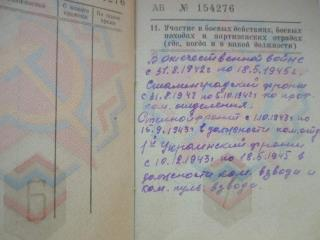 С какого времени
На какой срок
АБ № 154276
11. Участие в боевых действиях, боевых
походах и партизанских отрядах
(где, когда и в какой должности)
В отечественной войне
с 31.8.1942г по 18.5.1945г.
Сталинградский фронт
с 31.8.1942 по 5.10.1942г по
ком. отделения.
фронт с 1.10.1943г по
15.9.1943г в должности ком. отд
1й Украинский фронт
с 10.12.1943г по 18.5.1945 в
должности ком. взвода и
ком. пуль. взвода.